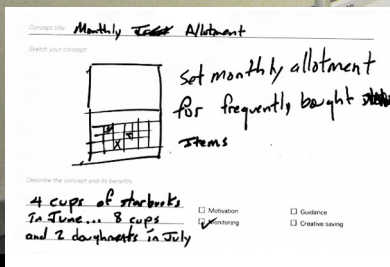 Concept title: Monthly Allotment
Sketch your concept:
Set monthly allotment
for frequently bought
Items
Describe the concept and its benefits
4 cups of starbucks
In June... 8 cups
and 2 doughnuts in July
Motivation
Monitoring
Guidance
Creative saving